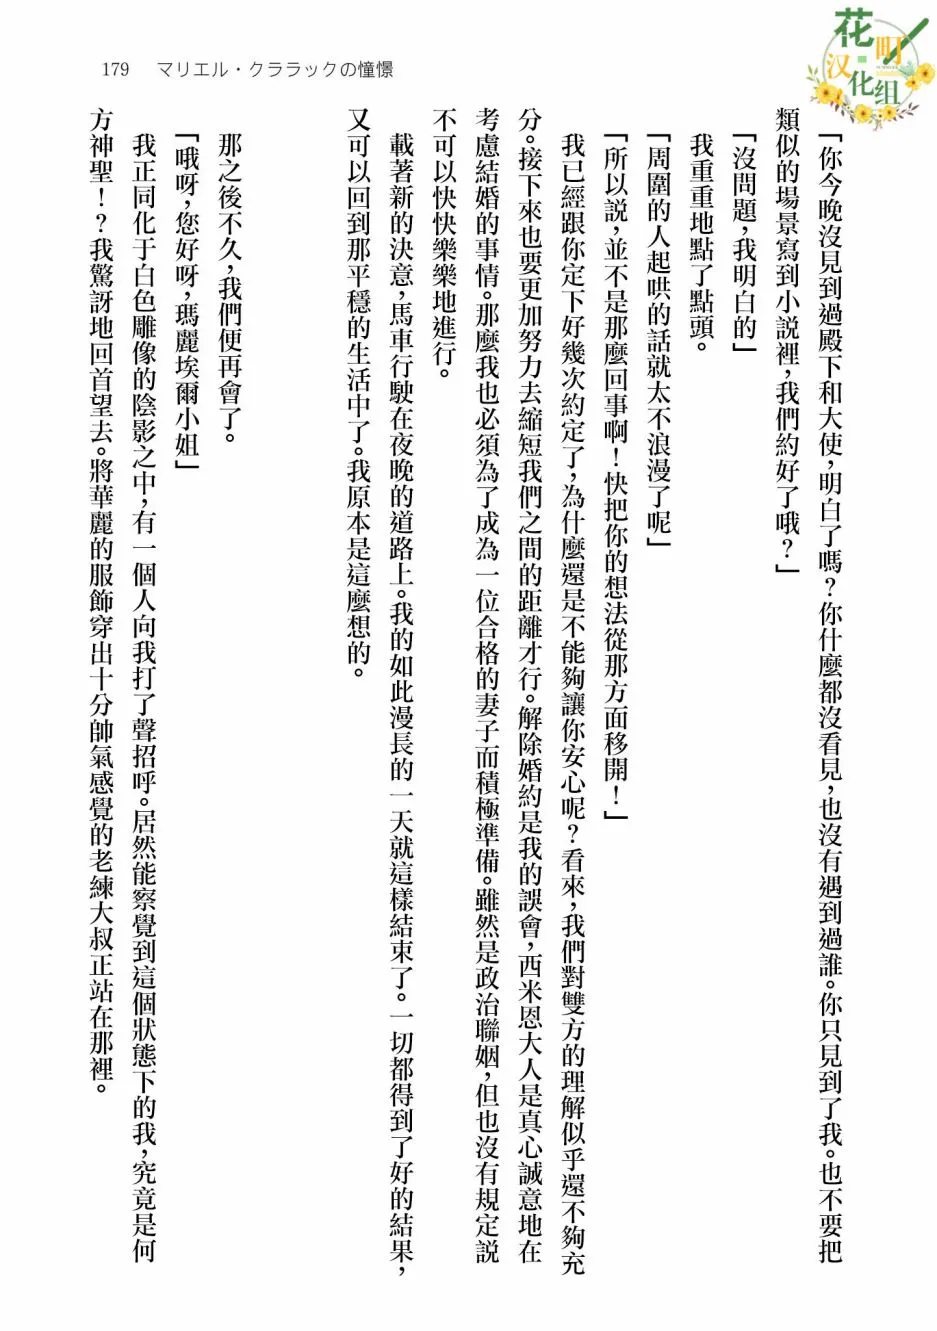 花町
汉化组
179 マリエル・クララックの憧憬
「你今晚沒見到過殿下和大使，明白了嗎？你什麼都沒看見，也沒有遇到過誰。你只見到了我。也不要把
類似的場景寫到小説裡，我們約好了哦？」
「沒問題，我明白的」
我重重地點了點頭。
「周圍的人起哄的話就太不浪漫了呢」
「所以説，並不是那麼回事啊！快把你的想法從那方面移開！」
我已經跟你定下好幾次約定了，為什麼還是不能夠讓你安心呢？看來，我們對雙方的理解似乎還不夠充
分。接下來也要更加努力去縮短我們之間的距離才行。解除婚約是我的誤會，西米恩大人是真心誠意地在
考慮結婚的事情。那麼我也必須為了成為一位合格的妻子而積極準備。雖然是政治聯姻，但也沒有規定説
不可以快快樂樂地進行。
載著新的決意，馬車行駛在夜晚的道路上。我的如此漫長的一天就這樣結束了。一切都得到了好的結果，
又可以回到那平穩的生活中了。我原本是這麼想的。
那之後不久，我們便再會了。
「哦呀，您好呀，瑪麗埃爾小姐」
我正同化于白色雕像的陰影之中，有一個人向我打了聲招呼。居然能察覺到這個狀態下的我，究竟是何
方神聖！？我驚訝地回首望去。將華麗的服飾穿出十分帥氣感覺的老練大叔正站在那裡。